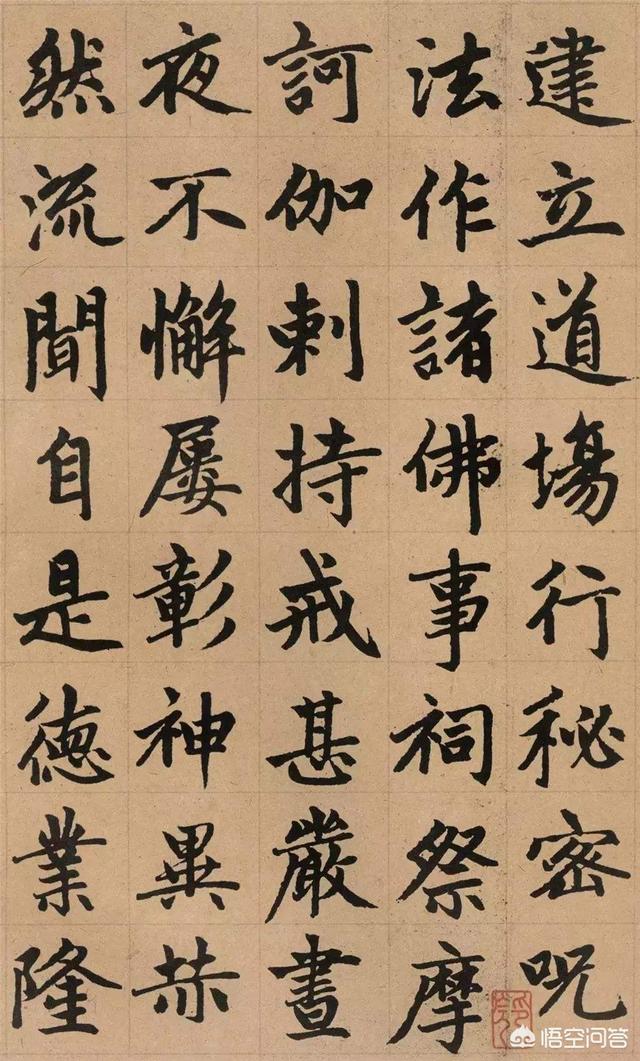 建立道場行秘密呪
法作諸佛事祠祭摩
訶伽剌持戒甚嚴晝
夜不懈屢彰神異赫
然流聞自是德業隆
悟空问答